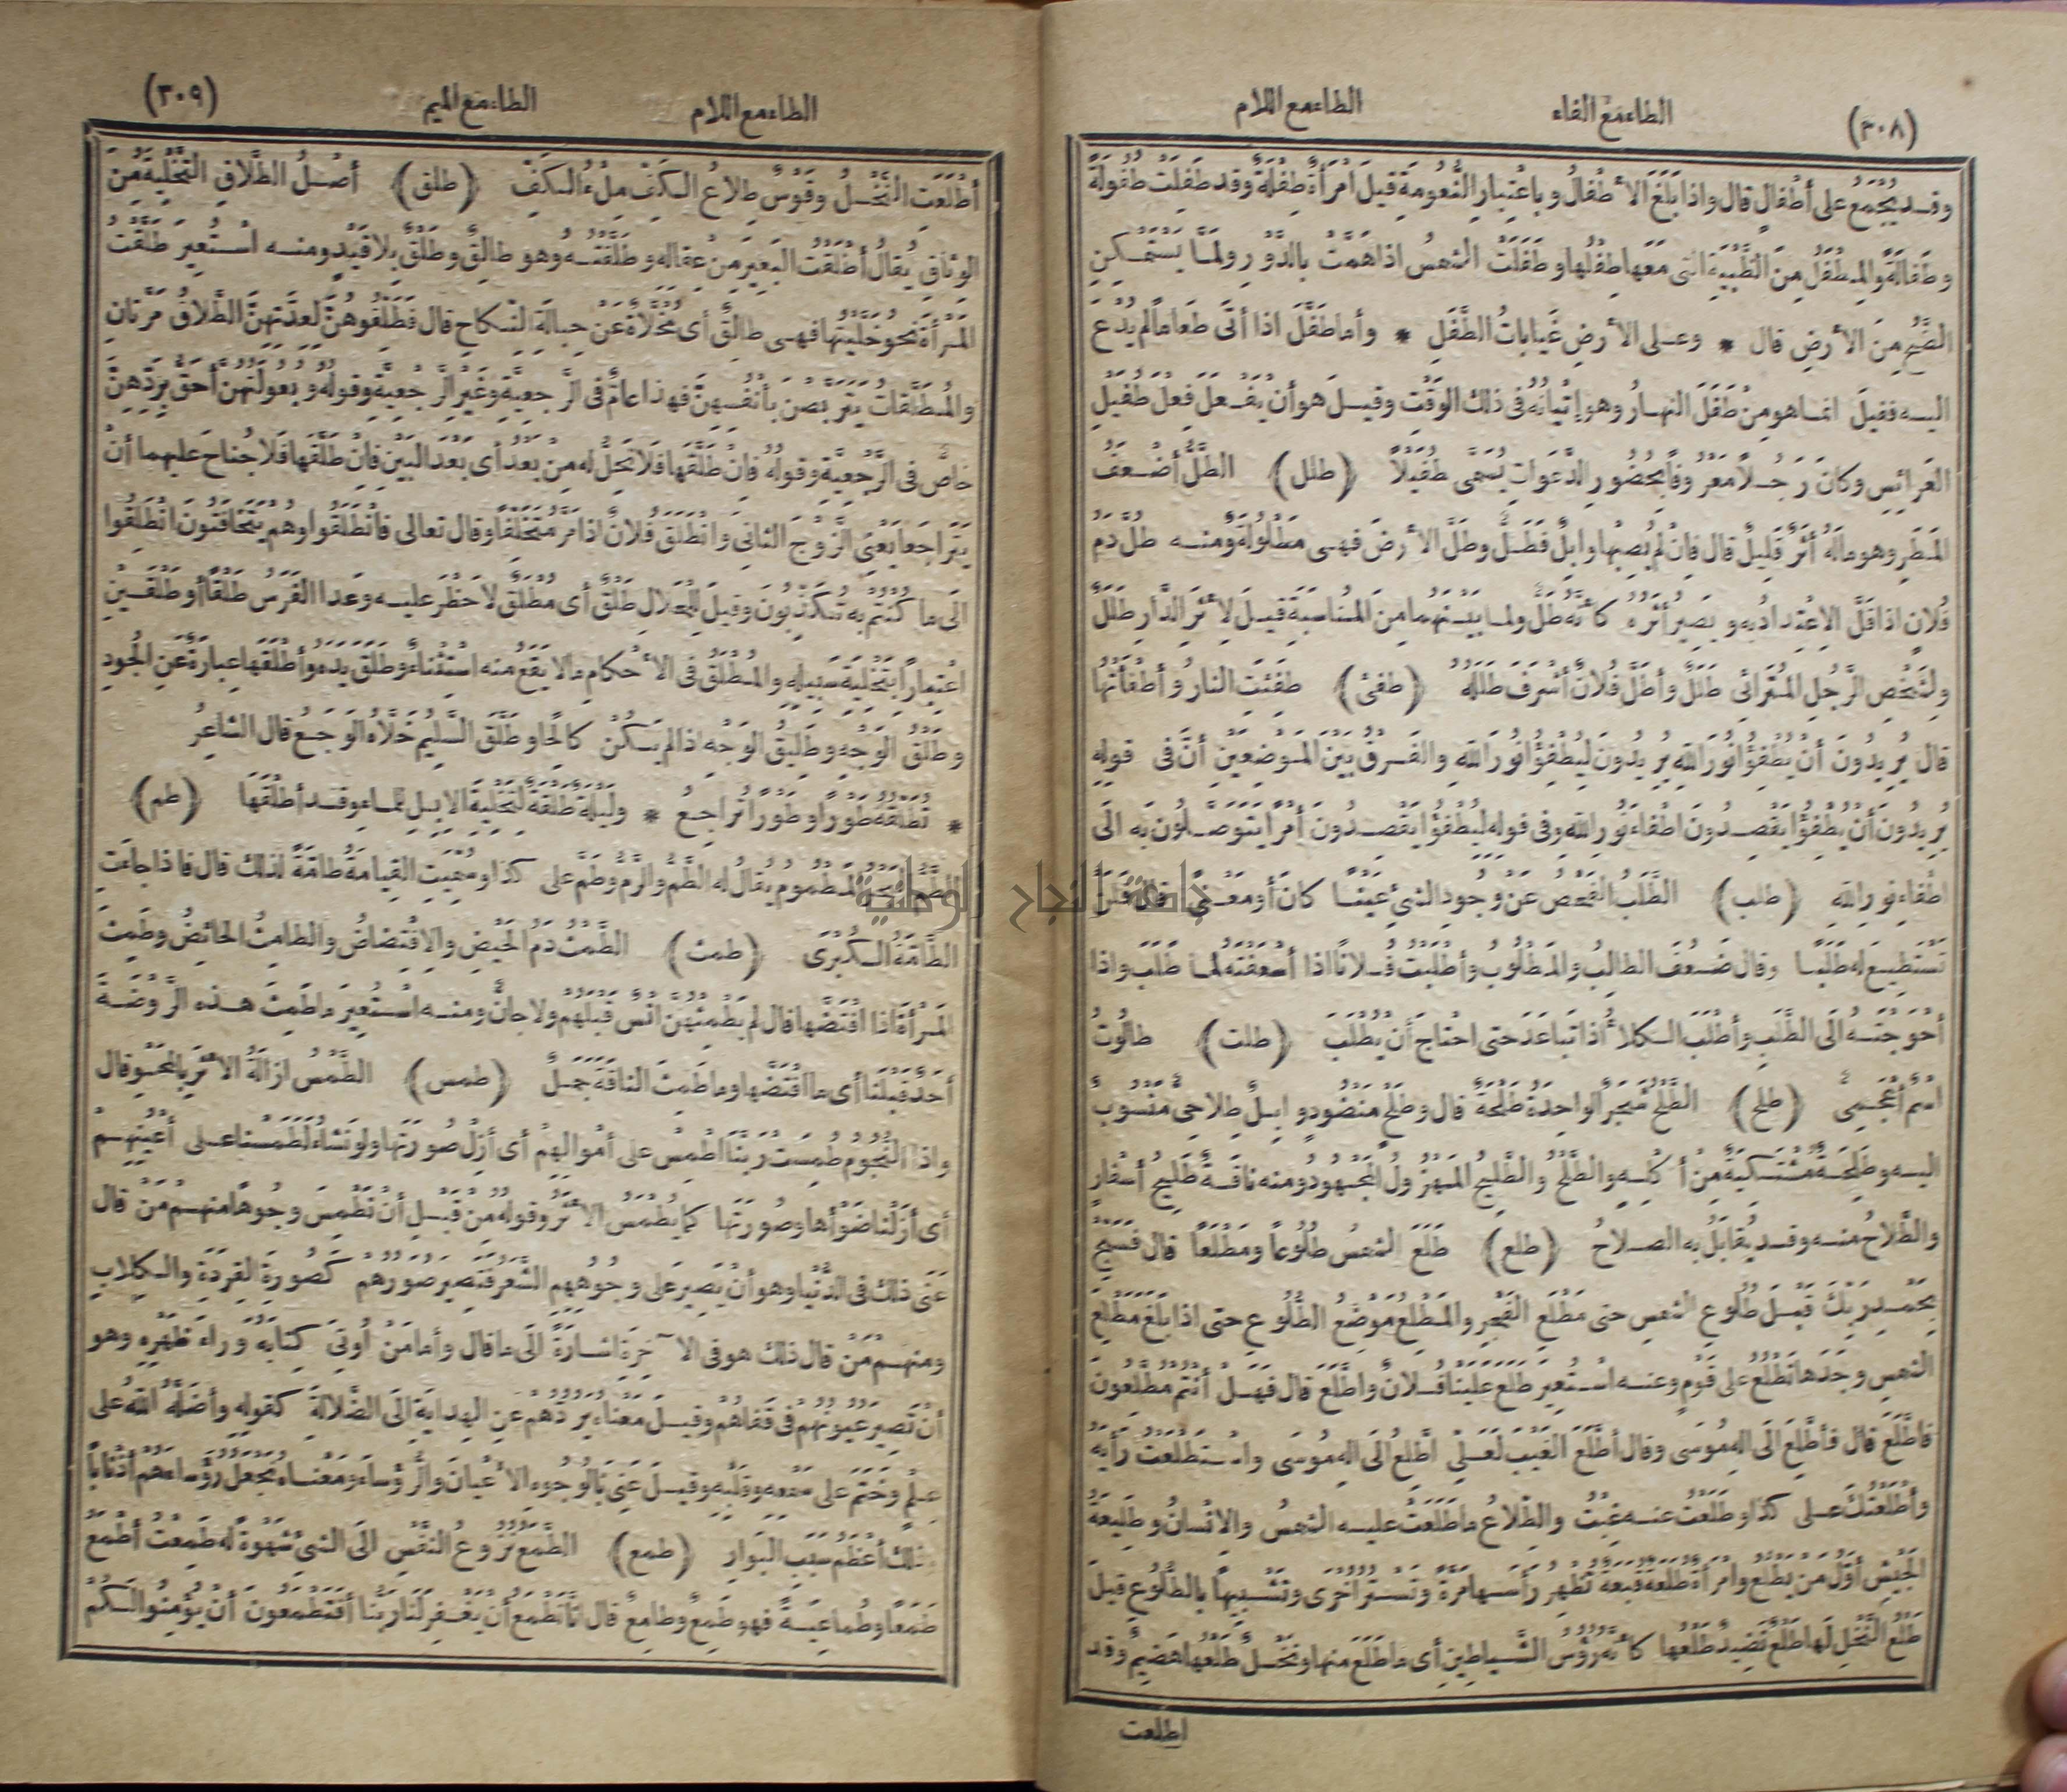 (٣٠٨) الطاء مع الفاء الطاء مع اللام
وقد يُجْمَعُ على أطْفالٍ قال واذا بَلَغَ الاَطْفالُ وباعْتِبارِ النُّعُومَةِ قيلَ امْرَأةٌ طِفْلَةٌ وقد طَفِلَتْ طُفُولَةً
وطَفالَةً والمِطْفَلُ مِنَ الظَّبْيَةِ التى مَعَها طِفْلُها وطَفَلَتْ الشمسُ اذا هَمَّتْ بالدَّوْرِ ولَمَّا يَسْتَمْكِنِ
الضَّحُّ مِنَ الاَرضِ قال * وعلى الاَرضِ غَياباتُ الطَّفَلِ * وأما طَفَّلَ اذا أتَى طَعاماً لم يُدْعَ
اليه فقيلَ انما هو مِنْ طَفَلَ النهارُ وهو إتْيانُهُ فى ذلك الوَقْتِ وقيل هو أن يَفْعَلَ فِعْلَ طُفَيْلِ
العَرائِسِ وكانَ رَجُلاً مَعْرُوفاً بِحُضُورِ الدَّعَواتِ يُسَمَّى طُفَيْلاً (طلل) الطَّلُّ أضْعَفُ
المَطَرِ وهو مالَهُ أثَرٌ قَلِيلٌ قال فانْ لم يُصِبْها وابِلٌ فَطَلٌّ وطَلَّ الاَرضَ فهى مَطْلُولَةٌ ومنه طُلَّ دَمُ
فُلانٍ اذا قَلَّ الاِعْتِدادُ به ويَصِيرُ أثَرُهُ كاَنَّهُ طَلٌّ ولما بَيْنَهُما مِنَ المُناسَبَةِ قيلَ لاَثَرِ الدَّارِ طَلَلٌ
ولِشَخْصِ الرَّجُلِ المُتَرائِى طَلَلٌ وأطَلَّ فُلانٌ أشْرَفَ طَلَلُهُ (طفئ) طَفِئَتِ النارُ وأطْفَأتُها
قال يُرِيدُونَ أنْ يُطْفِؤُا نُورَ اللهِ يُرِيدُونَ لِيُطْفِؤُا نُورَ اللهِ والفَرْقُ بَيْنَ المَوْضِعَيْنِ أنَّ فى قولهِ
يُرِيدُونَ أنْ يُطْفِؤُا يَقْصِدُونَ اطْفاءَ نُورِ اللهِ وفى قوله لِيُطْفِؤُا يَقْصِدُونَ أمْراً يَتَوَصَّلُونَ به الَى
اطْفاءِ نورِ اللهِ (طلب) الطَّلَبُ الفَحْصُ عَنْ وُجُودِ الشئِ عَيْنًا كانَ أو مَعْنًى قال فَلَنْ
تَسْتَطِيعَ له طَلَبًا وقال ضَعُفَ الطالِبُ والمَطْلُوبُ وأطْلَبْتُ فُلاناً اذا أسْعَفْتَهُ لما طَلَبَ واذا
أحْوَجْتَهُ الَى الطَّلَبِ وأطْلَبَ الكلاَُ اذا تَباعَدَ حتى احْتاجَ أنْ يُطْلَبَ (طلت) طالُوتُ
اسْمٌ أعْجَمِىٌّ (طلح) الطَّلْحُ شَجَرٌ الواحِدَةُ طَلْحَةٌ قال وطَلْحٍ مَنْضُودٍ وابِلٌ طِلاحِىٌّ مَنْسُوبٌ
اليه وطَلِحَةٌ مُشْتَكِيَةٌ مِنْ أكْلِهِ والطَّلْحُ والطَّلِيحُ المَهْزُولُ المَجْهُودُ ومنه ناقَةٌ طَلِيحُ أسْفارٍ
والطَّلاحُ منه وقد يُقابَلُ به الصلاحُ (طلع) طَلَعَ الشمسُ طُلُوعاً ومَطْلَعاً قال فَسَبِّحْ
بِحَمْدِ رَبِّكَ قَبْلَ طُلُوعِ الشمسِ حتى مَطْلَعِ الفَجْرِ والمَطْلِعُ مَوْضِعُ الطُّلُوعِ حتى اذا بَلَغَ مَطْلِعَ
الشمسِ وجَدَها تَطْلُعُ على قَوْمٍ وعنه اسْتُعِيرَ طَلَعَ علينا فُلانٌ واطَّلَعَ قال فَهَلْ أنْتُمْ مُطَّلِعُونَ
فاطَّلَعَ قال فأطَّلِعَ الَى الهِ مُوسَى وقال أطَّلَعَ الغَيْبَ لَعَلِّى أطَّلِعُ الَى الهِ مُوسَى واسْتَطْلَعْتُ رَأيَهُ
وأطْلَعْتُكَ على كذا وطَلَعْتُ عنه غِبْتُ والطِّلاعُ ما طَلَعَتْ عليه الشمسُ والاِنْسانُ وطَلِيعَةُ
الجَيْشِ أوَّلُ مَنْ يَطْلُعُ وامْرَأةٌ طُلَعَةٌ قُبَعَةٌ تُظْهِرُ رَأسَها مَرَّةً وتَسْتُرُ أُخْرَى وتَشْبِيهاً بالطُّلُوعِ قيلَ
طَلْعُ النَّخْلِ لَها طَلْعٌ نَضِيدٌ طَلْعُها كاَنَّهُ رُؤُسُ الشَّياطِينِ أى ما طَلَعَ منها ونَخْلٌ طَلْعُها هَضِيمٌ وقد
اطلعت
الطاء مع اللام الطاء مع الميم (٣٠٩)
أطْلَعَتِ النَّخْلُ وقَوْسٌ طِلاعُ الكَفِّ مِلْءُ الكَفِّ (طلق) أصْلُ الطَّلاقِ التَّخْلِيَةُ مِنَ
الوِثاقِ يُقالُ أطْلَقْتُ البَعِيرَ مِنْ عِقالِه وطَلَّقْتُهُ وهو طالِقٌ وطَلْقٌ بِلا قَيْدٍ ومنه اسْتُعِيرَ طَلَّقْتُ
المَرْأةَ نحوُ خَلَّيْتُها فهى طالِقٌ أى مُخَلاَّةٌ عَنْ حِبالَةِ النِّكاحِ قال فَطَلِّقُوهُنَّ لِعِدَّتِهِنَّ الطَّلاقُ مَرَّتانِ
والمُطَلَّقاتُ يَتَرَبَّصْنَ بأنْفُسِهِنَّ فهذا عامٌّ فى الرَّجْعِيَّةِ وغَيْرِ الرَّجْعِيَّةِ وقولُهُ وبُعُولَتُهُنَّ أحَقُّ بِرَدِّهِنَّ
خاصٌّ فى الرَّجْعِيَّةِ وقولُهُ فانْ طَلَّقَها فَلا تَحِلُّ له مِنْ بَعْدُ أى بَعْدَ البَيْنِ فانْ طَلَّقَها فَلا جُناحَ عليهما أنْ
يَتَراجَعا يَعْنِى الزَّوْجَ الثانِىَ وانْطَلَقَ فُلانٌ اذا مَرَّ مُتَخَلِّفاً وقال تعالى فانْطَلَقُوا وهُمْ يَتَخافَتُونَ انْطَلِقُوا
الَى ما كُنْتُمْ به تُكَذِّبُونَ وقيلَ لِلْحَلالِ طَلْقٌ أى مُطْلَقٌ لا حَظْرَ عليه وعَدا الفَرَسُ طَلْقاً أو طَلْقَيْنِ
اعْتِباراً بِتَخْلِيَةِ سَبِيلِهِ والمُطْلَقُ فى الاَحْكامِ مالا يَقَعُ منه اسْتِثْناءٌ وطَلَقَ يَدَهُ وأطْلَقَها عِبارَةٌ عَنِ الجُودِ
وطَلْقُ الوَجْهِ وطَلِيقُ الوَجْهِ اذا لم يَكُنْ كالِحاً وطَلَّقَ السَّلِيمُ خَلاَّهُ الوَجَعُ قال الشاعِرُ
* تُطَلِّقُهُ طَوْراً وطَوْراً تُراجِعُ * ولَيْلَةٌ طَلْقَةٌ لِتَخْلِيَةِ الابِلِ لِلْماءِ وقد أطْلَقَها (طم)
الطَّمُّ البَحْرُ المَطْمُومُ يُقالُ له الطَّمُّ والرَّمُّ وطَمَّ على كذا وسُمِّيَتِ القِيامَةُ طامَّةً لذلك قال فاذا جاءَتِ
الطَّامَّةُ الكُبْرَى (طمث) الطَّمْثُ دَمُ الحَيْضِ والاِفْتِضاضُ والطامِثُ الحائِضُ وطَمِثَ
المَرْأةَ اذا افْتَضَّها قال لم يَطْمِثْهُنَّ انْسٌ قَبْلَهُمْ ولا جانٌّ ومنه اسْتُعِيرَ ما طَمِثَ هذه الرَّوْضَةَ
أحَدٌ قَبْلَنا أى ما افْتَضَّها وما طَمِثَ الناقَةَ جَمَلٌ (طمس) الطَّمْسُ ازالَةُ الاَثَرِ بالمَحْوِ قال
واذا النُّجُومُ طُمِسَتْ رَبَّنا اطْمِسْ على أمْوالِهِمْ أى أزِلْ صُورَتَها ولو نَشاءُ لَطَمَسْنا على أعْيُنِهِمْ
أى أزَلْنا ضَوْأها وصُورَتَها كما يُطْمَسُ الاَثَرُ وقولُهُ مِنْ قَبْلِ أنْ نَطْمِسَ وجُوهاً منهم مَنْ قال
عَنَى ذلك فى الدُّنْيا وهو أنْ يَصِيرَ على وجُوهِهِمِ الشَّعَرُ فَتَصِيرَ صُوَرُهُمْ كَصُورَةِ القِرَدَةِ والكِلابِ
ومنهم مَنْ قال ذلك هو فى الآخِرَةِ اشارَةً الَى ما قال وأما مَنْ أُوتِىَ كِتابَهُ وَراءَ ظَهْرِهِ وهو
أنْ تَصِيرَ عُيُونُهُمْ فى قَفاهُمْ وقيلَ مَعْناهُ يَرُدُّهُمْ عَنِ الهِدايَةِ الَى الضَّلالَةِ كقولِهِ وأضَلَّهُ اللهُ على
عِلْمٍ وخَتَمَ على سَمْعِهِ وقَلْبِهِ وقيلَ عَنَى بالوُجُوهِ الاَعْيانَ والرُّؤَساءَ ومَعْناهُ نَجْعَلُ رُؤَساءَهُمْ أذْناباً
وذلك أعْظَمُ سَبَبِ البَوارِ (طمع) الطَّمَعُ نُزُوعُ النَّفْسِ الَى الشئِ شَهْوَةً له طَمِعْتُ أطْمَعُ
طَمَعاً وطُماعِيَةً فهو طَمِعٌ وطامِعٌ قال انَّا نَطْمَعُ أنْ يَغْفِرَ لَنا رَبُّنا أفَتَطْمَعُونَ أنْ يُؤْمِنُوا لَكُمْ
جامعة النجاح الوطنية